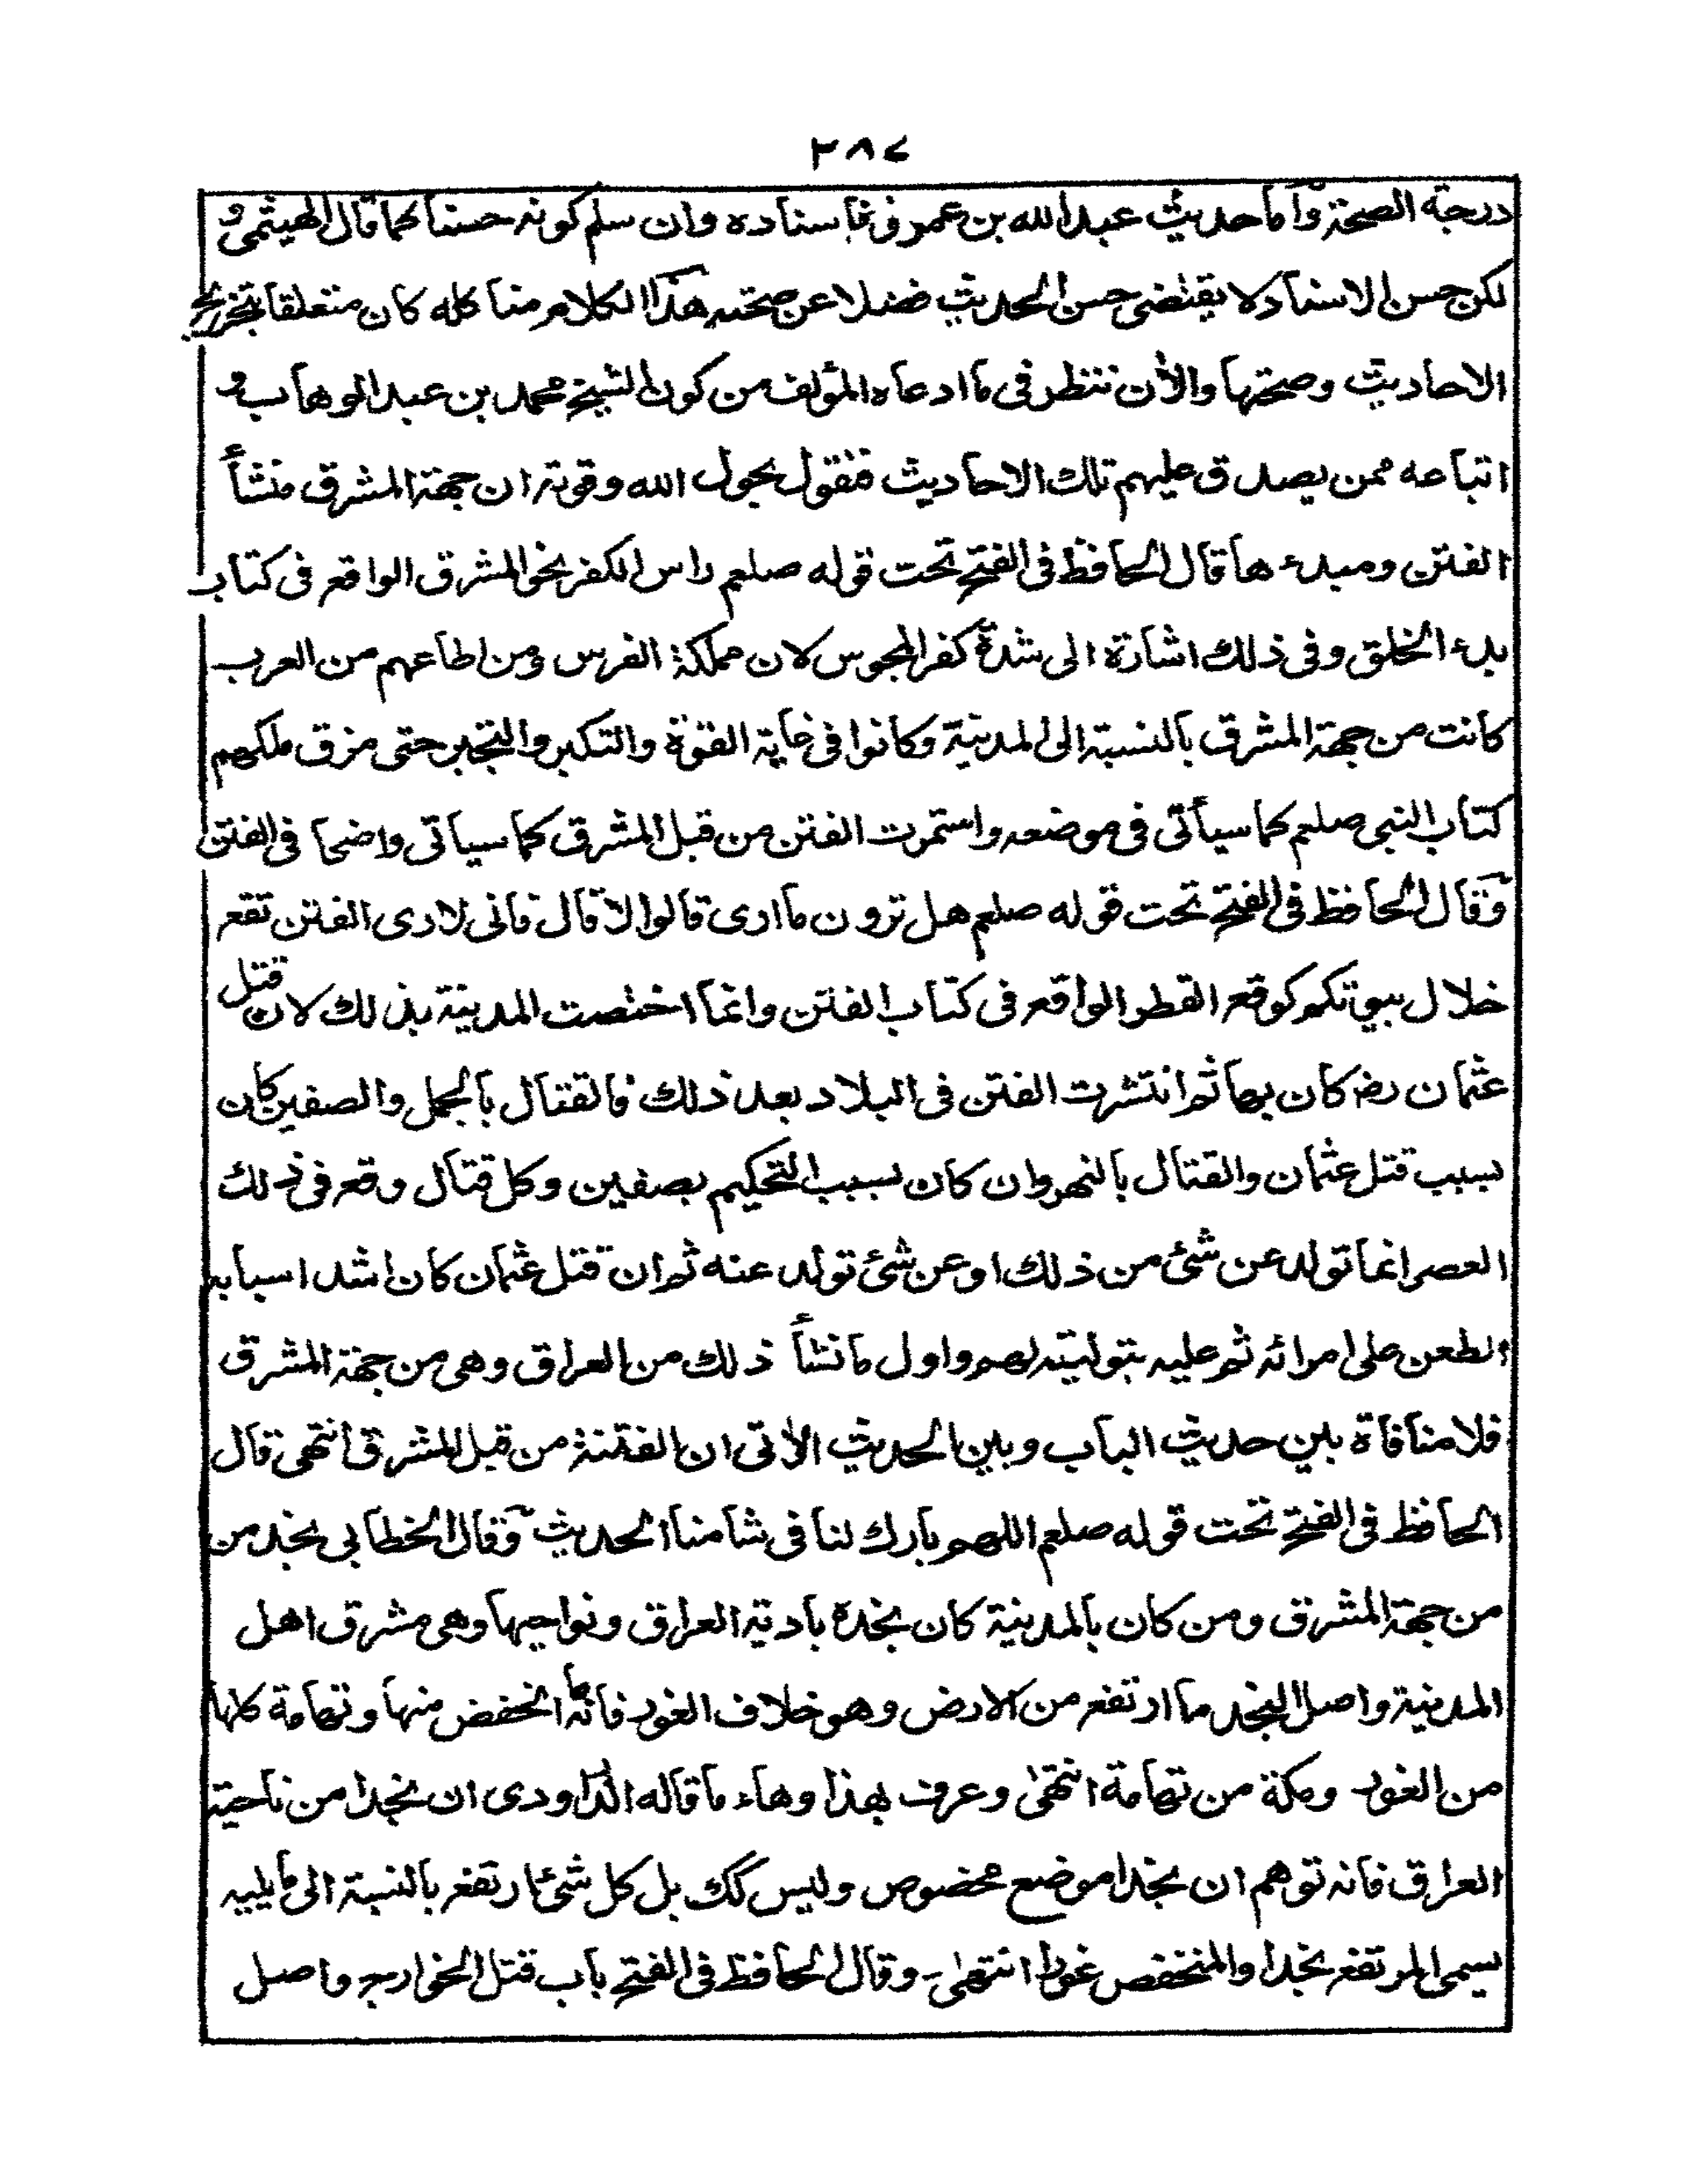 ٣٨٧
درجة الصحة وأما حديث عبد الله بن عمر فغاسناده وان سلم كونه حسنا كما قال الهيثمى و
لكن حسن الاسناد لا يقتضى حسن الحديث فضلا عن صحته هذا الكلام منا كله كان متعلقا بتخريج
الاحاديث وصحتها والأن ننظر فى ما ادعاه المؤلف من كون الشيخ محمد بن عبد الوهاب و
اتباعه ممن يصدق عليهم تلك الاحاديث فنقول بحول الله وقوته ان جهة المشرق منشأ
الفتن ومبدءها قال الحافظ فى الفتح تحت قوله صلعم راس الكفر نحو المشرق الواقع فى كتاب
بدء الخلق وفى ذلك اشارة الى شدة كفر المجوس لان مملكة الفرس ومن اطاعهم من العرب
كانت من جهة المشرق بالنسبة الى المدينة وكانوا فى غاية القوة والتكبر والتجبر حتى مزق ملكهم
كتاب النبى صلعم كما سيأتى فى موضعه واستمرت الفتن من قبل المشرق كما سياتى واضحا فى الفتن
وقال الحافظ فى الفتح تحت قوله صلعم هل ترون ما ارى قالوا لا قال فانى لارى الفتن تقع
خلال بيوتكم كوقع القطر الواقع فى كتاب الفتن وانما اختصت المدينة بذلك لان قتل
عثمان رضه كان بها ثم انتشرت الفتن فى البلاد بعد ذلك فالقتال بالجمل والصفين كان
بسبب قتل عثمان والقتال بالنهروان كان بسبب التحكيم بصفين وكل قتال وقع فى ذلك
العصر انما تولد عن شئ من ذلك او عن شئ تولد عنه ثم ان قتل عثمان كان اشد اسبابه
الطعن على امرائه ثم عليه بتوليته لهم واول ما نشأ ذلك من العراق وهى من جهة المشرق
فلا منافاة بين حديث الباب وبين الحديث الأتى ان الفتنة من قبل المشرق انتهى قال
الحافظ فى الفتح تحت قوله صلعم اللهم بارك لنا فى شامنا الحديث وقال الخطابى نجد من
من جهة المشرق ومن كان بالمدينة كان نجده بادية العراق ونواحيها وهى مشرق اهل
المدينة واصل النجد ما ارتفع من الارض وهو خلاف الغور فانه ما انخفض منها وتهامة كلها
من الغور ومكة من تهامة انتهى وعرف بهذا وهاء ما قاله الداودى ان نجدا من ناحية
العراق فانه توهم ان نجدا موضع مخصوص وليس كك بل كل شئ ارتفع بالنسبة الى ما يليه
يسمى المرتفع نجدا والمنخفض غورا انتهى وقال الحافظ فى الفتح باب قتل الخوارج واصل